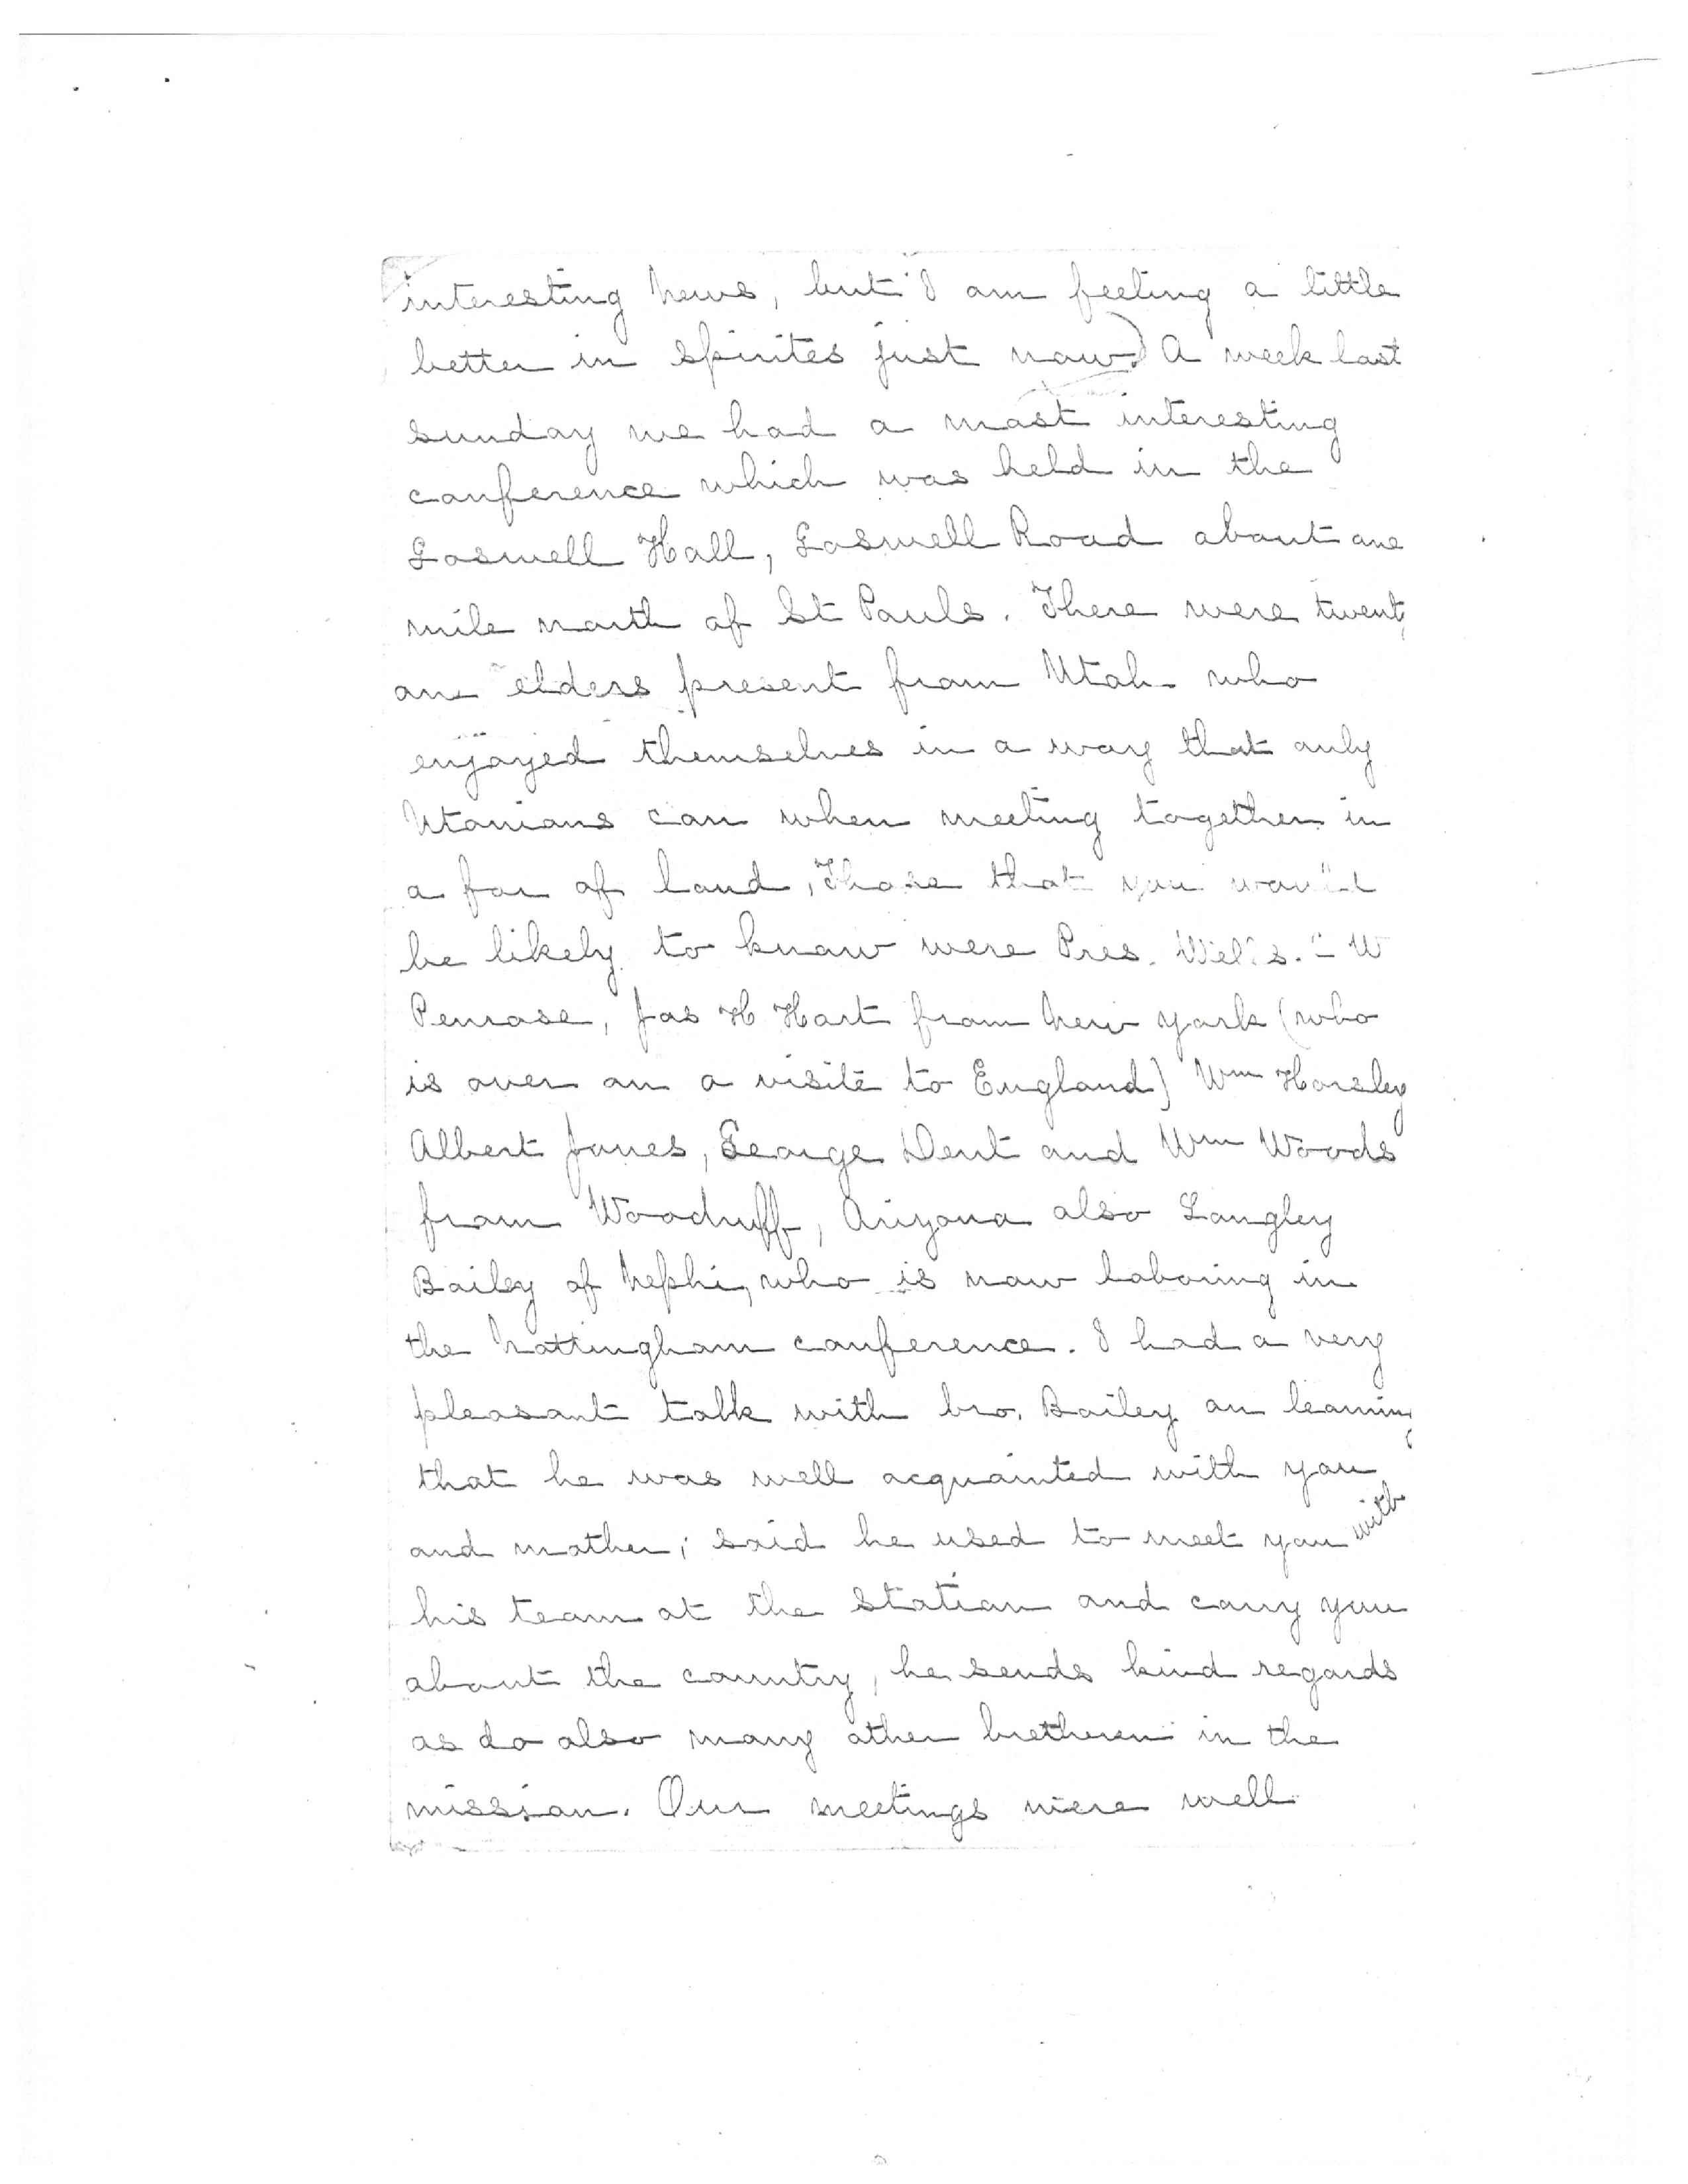 interesting news, but I am feeling a little
better in spirites just now.) A week last
sunday we had a most interesting
conference which was held in the
Goswell Hall, Goswell Road about one
mile north of St Pauls. There were twenty
one elders present from Utah who
enjoyed themselves in a way that only
Utonians can when meeting together in
a far of land, Those that you would
be likely to know were Pres. Wells. C W
Penrose, Jas H Hart from New york (who
is over on a visite to England) Wm Horsley
Albert Jones, George Dent and Wm Woods
from Woodruff, Arizona also Langley
Bailey of Nephi, who is now laboring in
the Nottingham conference. I had a very
pleasant talk with bro. Bailey on learning
that he was well acquainted with you
and mother; said he used to meet you with
his team at the station and carry you
about the country, he sends kind regards
as do also many other bretheren in the
mission. Our meetings were well